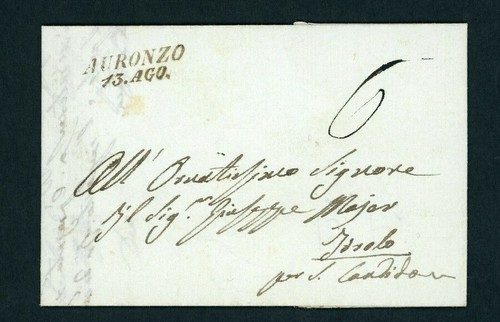 AURONZO
13. AGO.
6
All' Ornatissimo Signore
Il Sig.r Giuseppe Majer
per S. Candido